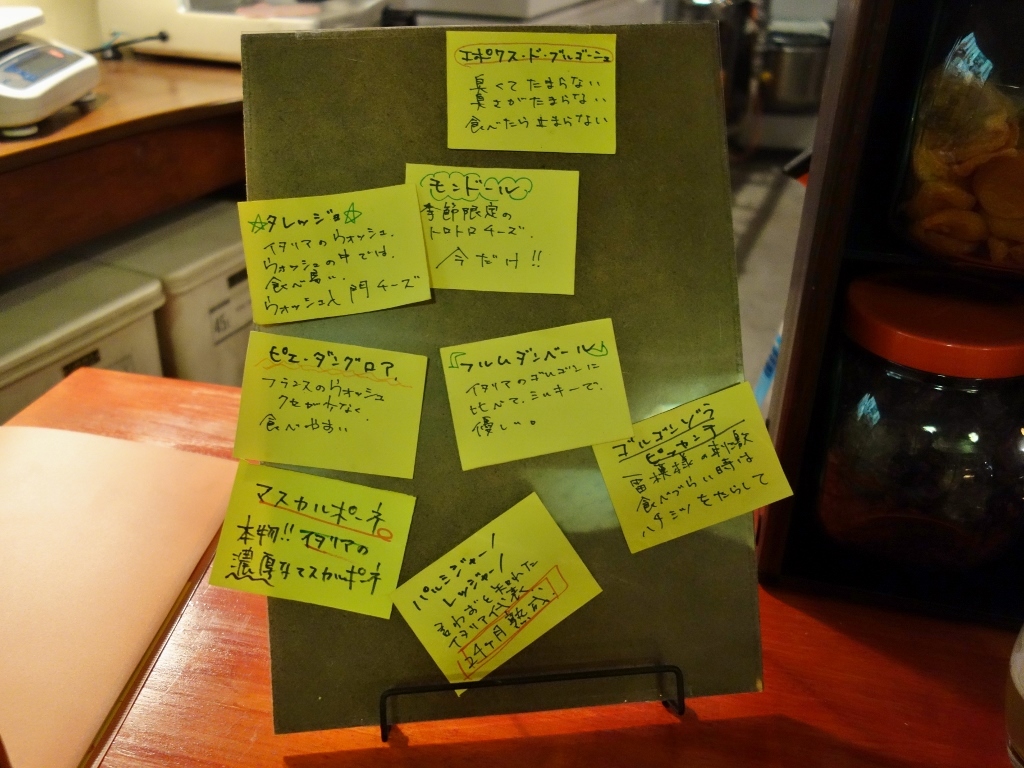 エポワス・ド・ブルゴーニュ
臭くてたまらない
臭さがたまらない
食べたら止まらない
モンドール
季節限定の
トロトロチーズ.
今だけ!!
タレッジョ
イタリアのウォッシュ.
ウォッシュの中では.
食べ易い.
ウォッシュ入門チーズ
ピエ・ダングロア.
フランスのウォッシュ
クセが少なく
食べやすい
フルムダンベール
イタリアのゴルゴンに
比べて、ミルキーで.
優しい。
ゴルゴンゾラ
ピカンテ
雷模様の刺激
食べづらい時は
ハチミツをたらして
マスカルポーネ
本物!! イタリアの
濃厚なマスカルポーネ
パルミジャーノ
レッジャーノ
言わずと知れた
イタリア代表
24ヶ月熟成